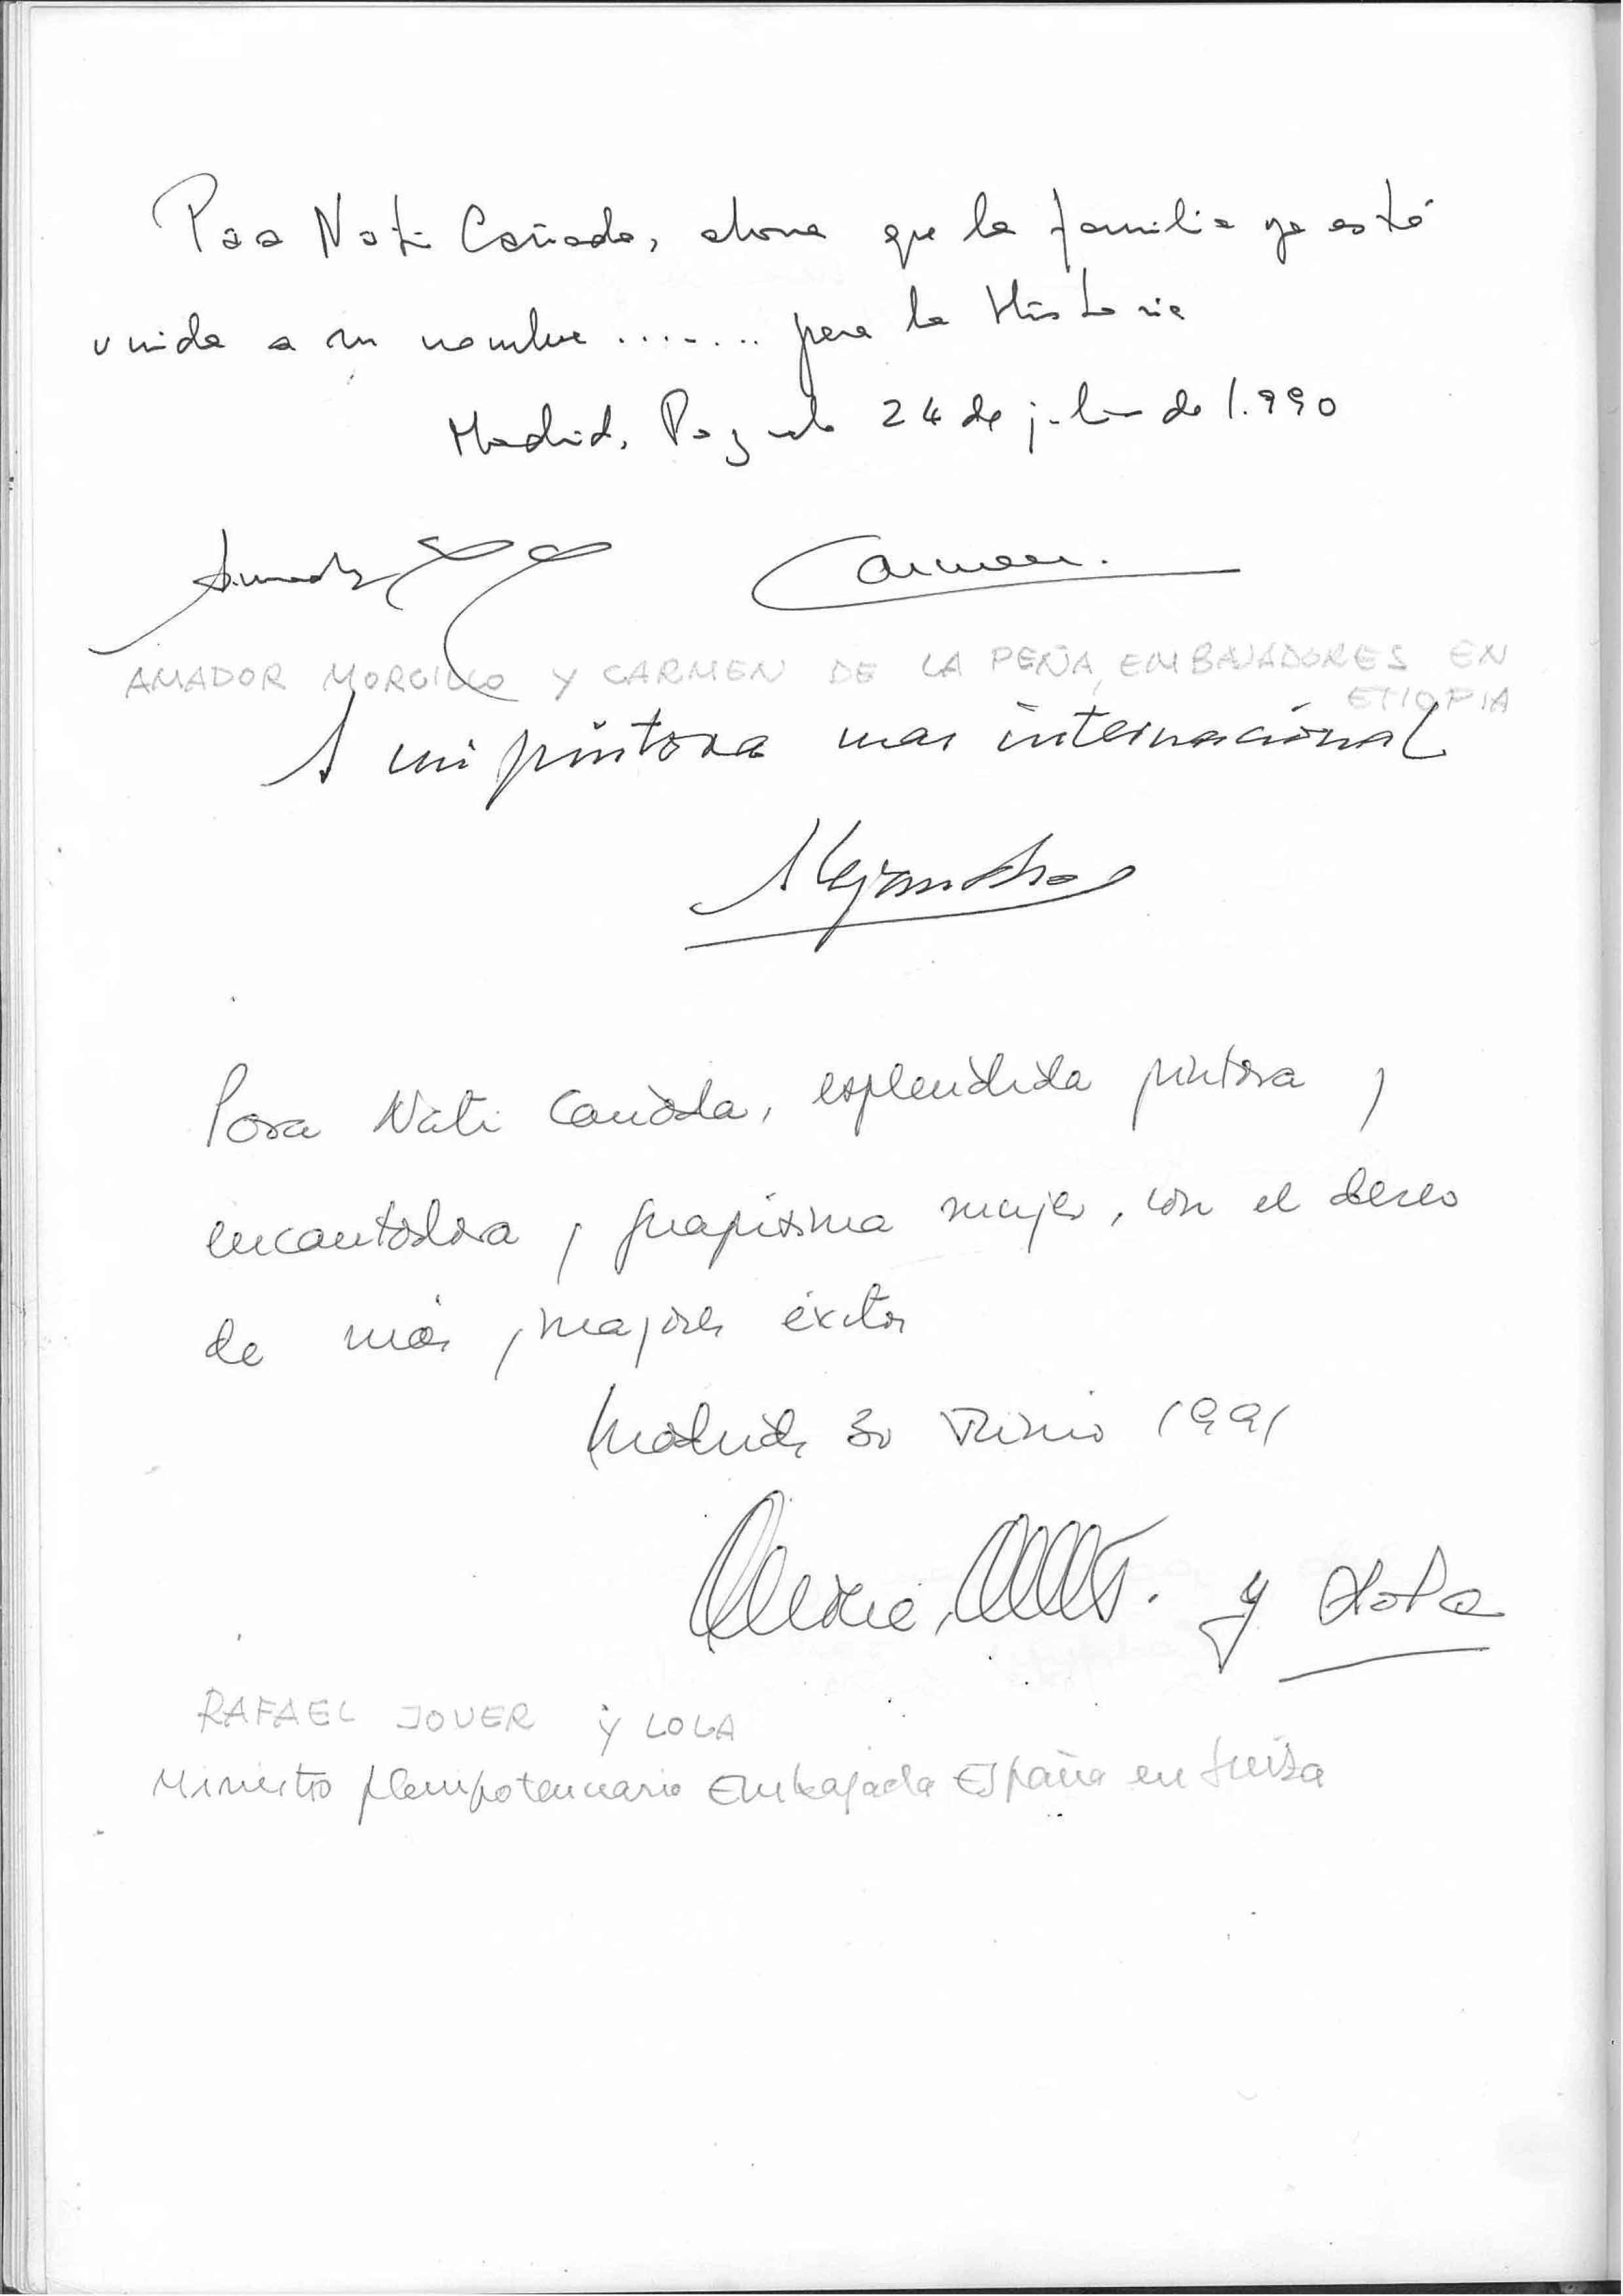 Para Nati Cañada, ahora que la familia ya está
unida a su nombre ....... para la Historia
Madrid, Pozuelo 24 de julio de 1.990
Amador Carmen.
AMADOR MORCILLO Y CARMEN DE LA PEÑA, EMBAJADORES EN
ETIOPIA
A mi pintora mas internacional
Alejandra
Para Nati Cañada, esplendida pintora y
encantadora y guapísima mujer, con el deseo
de más y mayores éxitos
Madrid, 30 Junio 1991
y Lola
RAFAEL JOVER Y LOLA
Ministro plenipotenciario Embajada España en Suiza